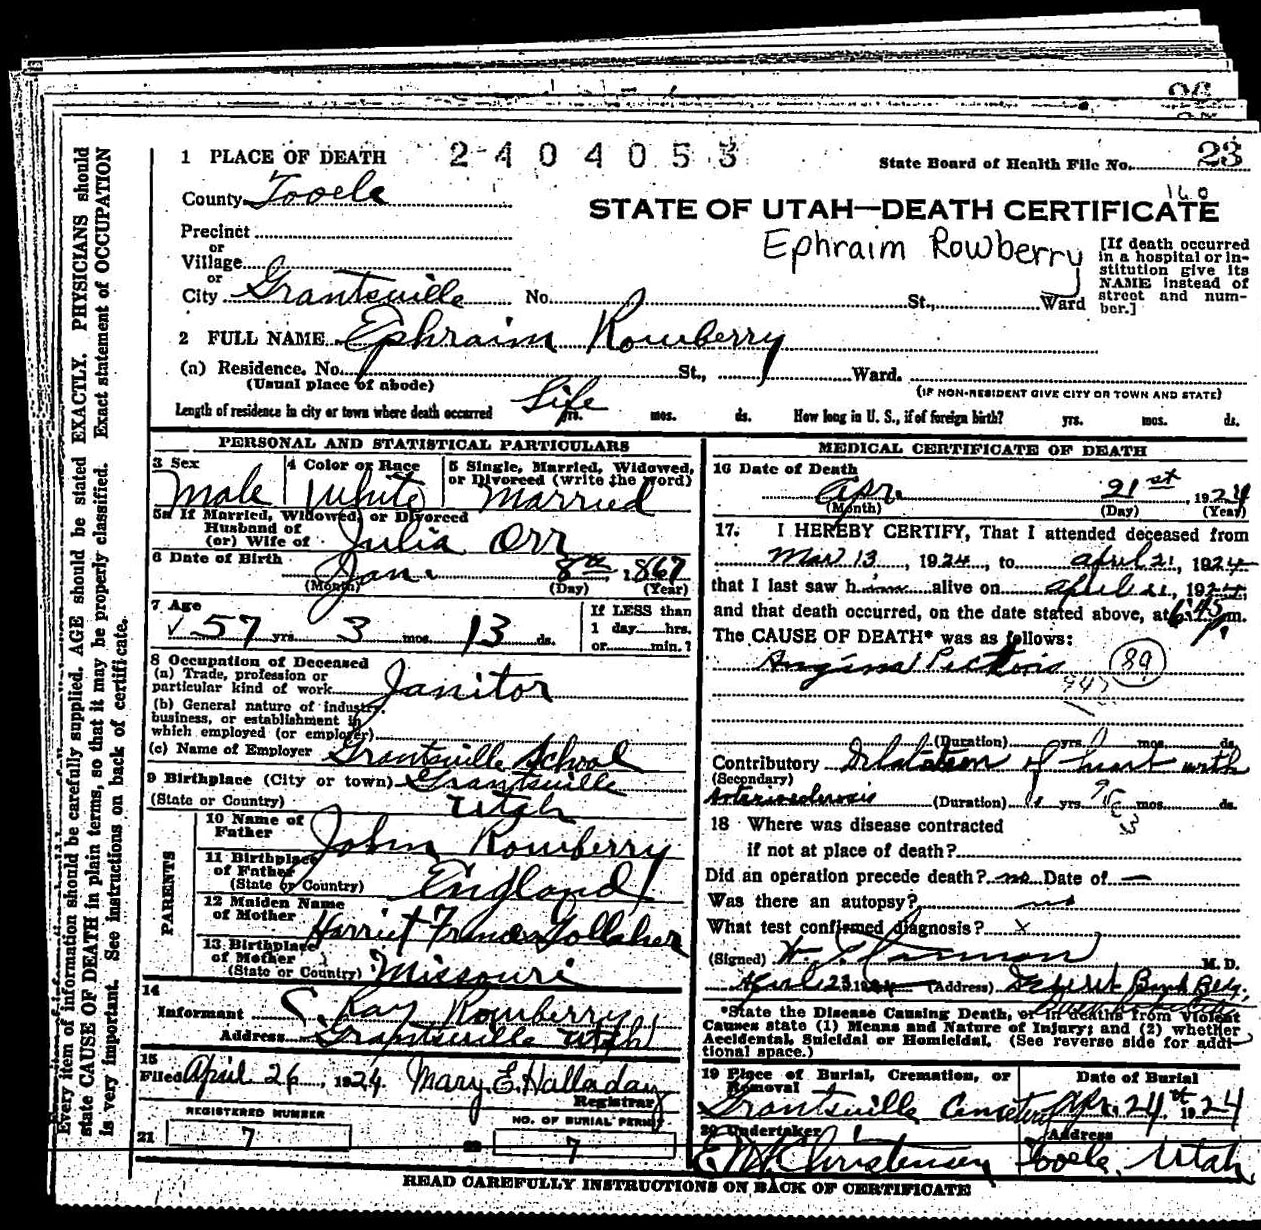 1 PLACE OF DEATH 2404053 State Board of Health File No. 23
County Tooele
160
STATE OF UTAH—DEATH CERTIFICATE
Ephraim Rowberry
Precinct
or
Village
or
City Grantsville No. St., Ward
[If death occurred
in a hospital or in-
stitution give its
NAME instead of
street and num-
ber.]
2 FULL NAME Ephraim Rowberry
(a) Residence. No. St., Ward.
(Usual place of abode) (IF NON-RESIDENT GIVE CITY OR TOWN AND STATE)
Length of residence in city or town where death occurred Life yrs. mos. ds. How long in U. S., if of foreign birth? yrs. mos. ds.
PERSONAL AND STATISTICAL PARTICULARS
3 Sex Male
4 Color or Race White
5 Single, Married, Widowed,
or Divorced (write the word)
Married
5a If Married, Widowed, or Divorced
Husband of
(or) Wife of Julia Orr
6 Date of Birth Jan. 8th, 1867
(Month) (Day) (Year)
7 Age 57 yrs. 3 mos. 13 ds.
If LESS than
1 day hrs.
or min.?
8 Occupation of Deceased
(a) Trade, profession or
particular kind of work Janitor
(b) General nature of industry,
business, or establishment in
which employed (or employer)
(c) Name of Employer Grantsville School
9 Birthplace (City or town) Grantsville
(State or Country) Utah
PARENTS
10 Name of
Father John Rowberry
11 Birthplace
of Father
(State or Country) England
12 Maiden Name
of Mother Harriet Frances Gollaher
13 Birthplace
of Mother
(State or Country) Missouri
14
Informant Ray Rowberry
Address Grantsville Utah
15
Filed April 26, 1924. Mary E. Halladay
Registrar
REGISTERED NUMBER NO. OF BURIAL PERMIT
21 7 7
MEDICAL CERTIFICATE OF DEATH
16 Date of Death
Apr. 21st, 1924
(Month) (Day) (Year)
17. I HEREBY CERTIFY, That I attended deceased from
Mar 13, 1924, to April 21, 1924
that I last saw him alive on April 21, 1924,
and that death occurred, on the date stated above, at 6:45 P.m.
The CAUSE OF DEATH* was as follows:
Angina Pectoris 89
(Duration) yrs. mos. ds.
Contributory Dilatation of heart with
(Secondary)
Arteriosclerosis (Duration) yrs. mos. ds.
18 Where was disease contracted
if not at place of death?
Did an operation precede death? no Date of —
Was there an autopsy? no
What test confirmed diagnosis? x
(Signed) M. D.
April 23 1924 (Address)
*State the Disease Causing Death, or in deaths from Violent
Causes state (1) Means and Nature of Injury; and (2) whether
Accidental, Suicidal or Homicidal. (See reverse side for addi-
tional space.)
19 Place of Burial, Cremation, or
Removal
Grantsville Cemetery
Date of Burial
Apr. 24th 1924
20 Undertaker
E M Christensen
Address
Tooele, Utah
READ CAREFULLY INSTRUCTIONS ON BACK OF CERTIFICATE
Every item of information should be carefully supplied. AGE should be stated EXACTLY. PHYSICIANS should
state CAUSE OF DEATH in plain terms, so that it may be properly classified. Exact statement of OCCUPATION
is very important. See instructions on back of certificate.